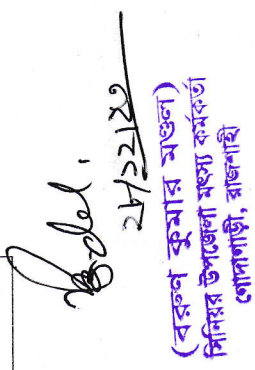 ২৮/১২/২৩
(বরুণ কুমার মণ্ডল)
সিনিয়র উপজেলা মৎস্য কর্মকর্তা
গোদাগাড়ী, রাজশাহী